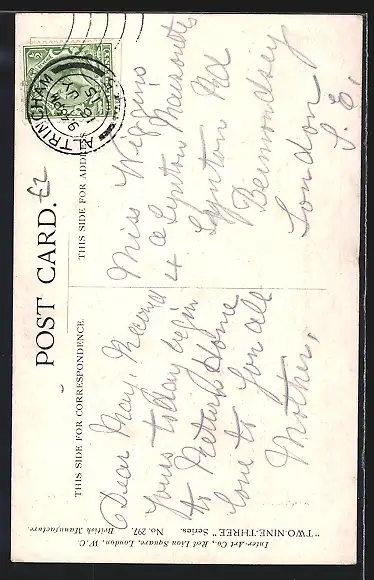 POST CARD.
£2
THIS SIDE FOR CORRESPONDENCE.
THIS SIDE FOR ADDRE
ALTRINCHAM
15
Dear May,
Yours today
to Return Home
love to you all
Mother,
Miss Wiggins
4 a Lynton
Lynton Rd
Bermondsey
London
S. E.
"TWO-NINE-THREE" Series. No. 297. British Manufacture.
Inter-Art Co., Red Lion Square, London, W.C.